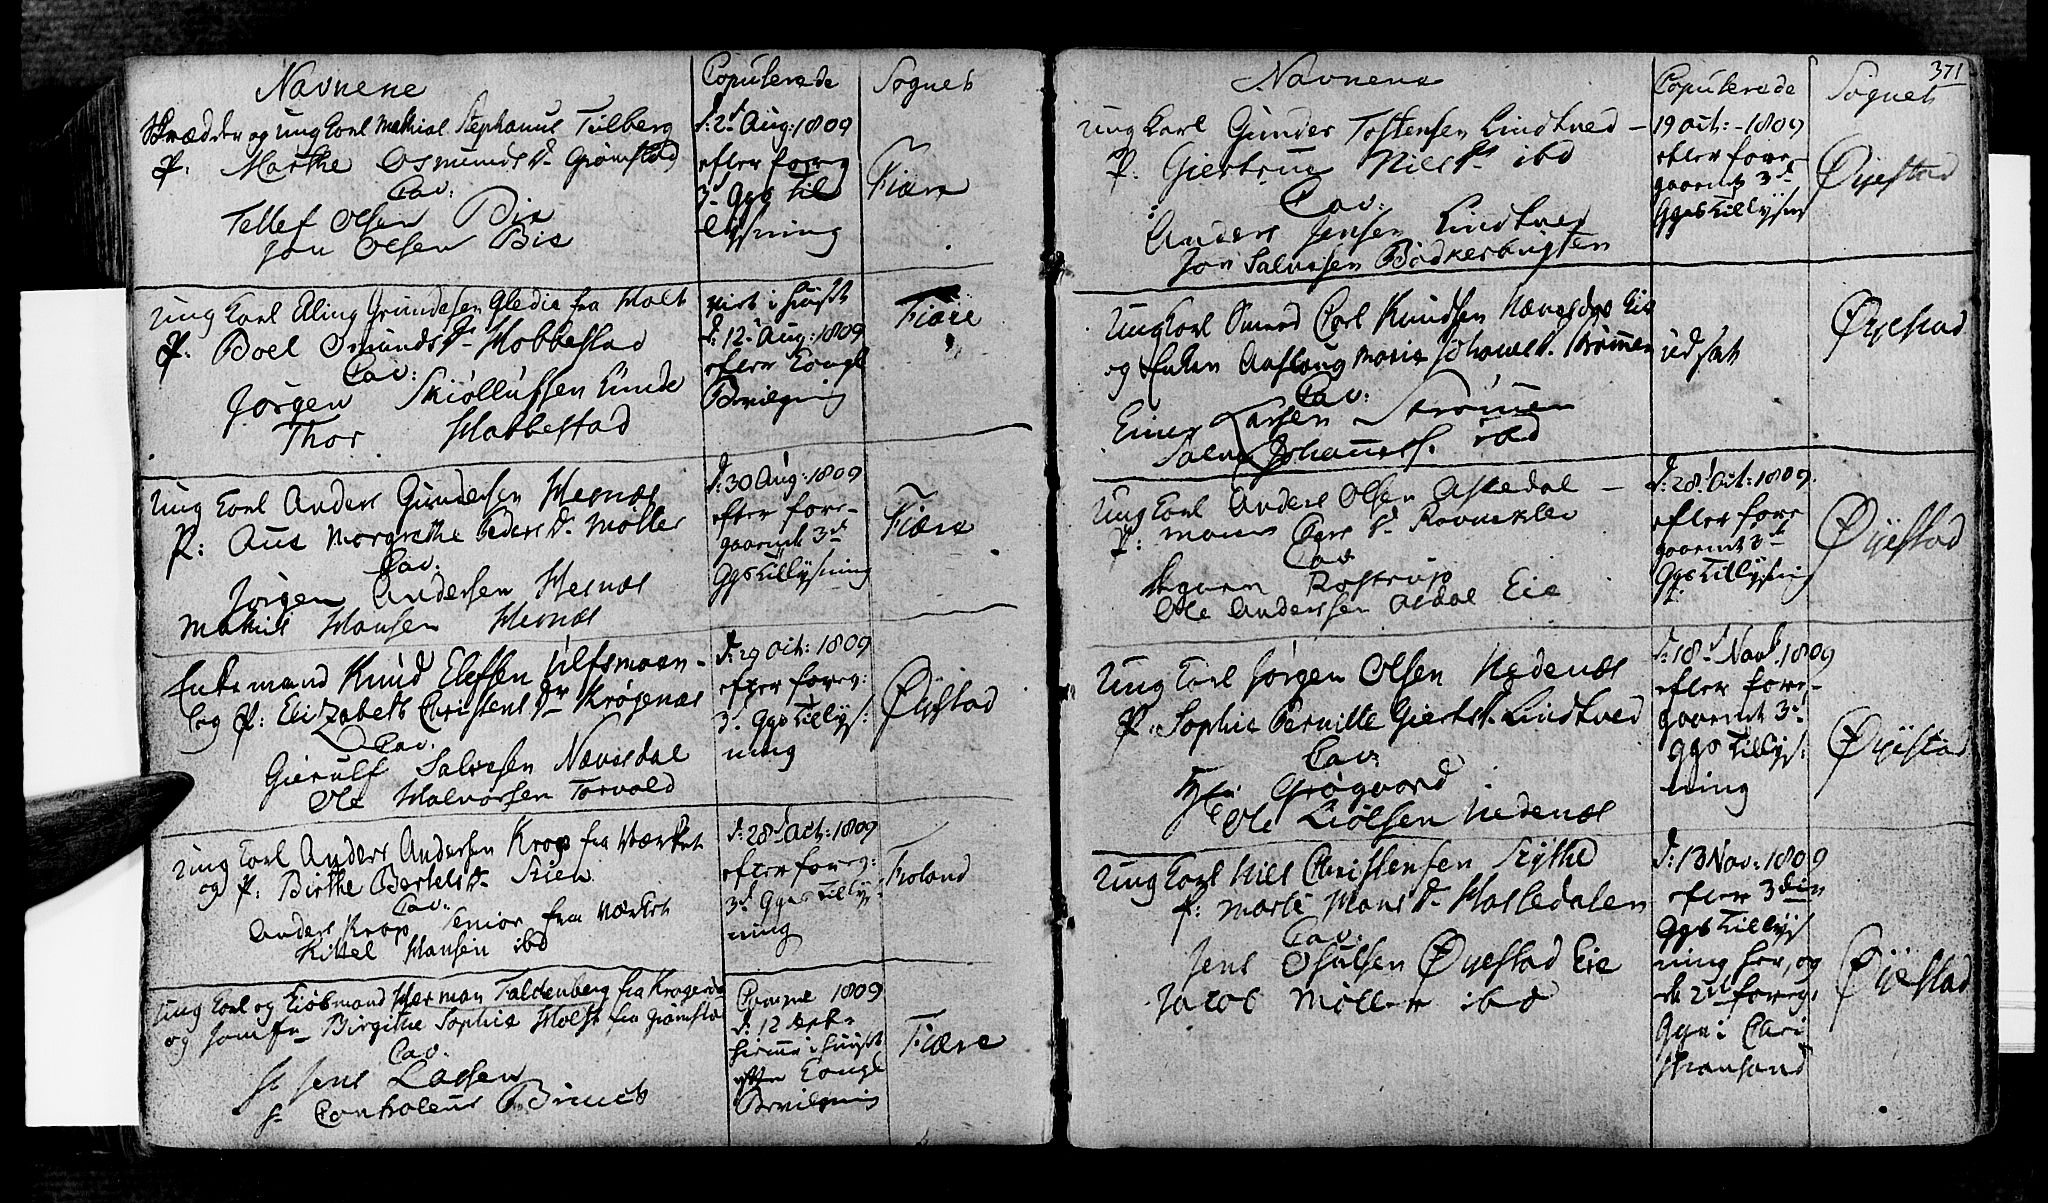 Navnene
Copulerede
Sognet
Skrædder og ung Karl Mathias Stephanus Tulberg
P: Marthe Osmundsd. Grømstad
Cav:
Tellef Olsen Bie
Jon Olsen Bie
d: 2 Aug: 1809
efter foreg
3de Ggs Til
lysning
Fiære
Ung Karl Elling Grundesen Gledie fra Holt
P. Boel Omundsd. Hobbestad
Cav:
Jørgen Skiøllufsen Lunde
Thor Habbestad
viet i Huuset
d: 12. Aug: 1809
efter Kongl
Bevilgning
Fiære
Ung Karl Anders Gundersen Hesnæs
P: Ane Margrethe Peders D. Møller
Cav.
Jørgen Andersen Hesnæs
Mathis Hansen Hesnæs
d: 30 Aug: 1809
efter fore-
gaaende 3de
Ggs Tillysning
Fiære
Enkemand Knud Elefsen Ulfsmoen-
og P: Elizabeth Christens Dr Krøgenæs
Cav.
Gierulf Salvesen Næversdal
Ole Halvorsen Torvold
d: 29 Oct: 1809
efter foreg:
3de Ggs Tillys:
ning
Øyestad
Ung Karl Anders Andersen Krop fra Værket
og P: Birthe Bertelsd. Stien
Cav:
Anders Krop Senior fra Værket
Kittel Hansen ibd
d: 28 Oct: 1809
efter foreg:
3de Ggs Tillys
ning
Froland
Ung Karl og Kiøbmand Herman Faldenberg fra Kragerøe
og Jomfr. Birgithe Sophie Holst fra Grømstad
Cav.
Hr Jens Lassen
Hr Controleur
1809
d: 12 Sept:
hiemme i Huuset
efter Kongl
Bevilgning
Fiære
371
Navnene
Copulerede
Sognet
Ung Karl Gunder Tostensen Lindtved -
P. Giertrue Niels D. ibd
Cav:
Anders Jensen Lindtved
Jon Salvesen Bødkerbugten
19 Oct: 1809
efter fore-
gaaende 3de
Ggs Tillysn
Øyestad
Ung Karl Carl Knudsen Næversdals Eie
og Enken Aaslaug Marie Johannesd. Strømmen
Cav:
Einer Larsen Strømmen
Salve Johanness. ibd
udsat
Øyestad
Ung Karl Anders Olsen Askedal -
P: Maren Lars D. Ravneklev
Cav
Rostrup
Ole Andersen Asdal Eie
d: 28. Oct: 1809.
efter fore
gaaende 3de
Ggs Tillysning
Øyestad
Ung Karl Jørgen Olsen Nedenæs
P. Sophie Pernille Giertsd. Lindtved
Cav:
Grøgaard
Ole Kiølsen Nedenæs
d: 18de Novb. 1809
efter fore-
gaaende 3de
Ggs Tillys:
ning
Øyestad
Ung Karl Niels Christensen Rythe
P: Marte Hans D. Hasledalen
Cav:
Jens Osulsen Øyestad Eie
Jacob Møller ibd
d: 13 Nov: 1809
efter 3den
Ggs Tillys
ning her, og
de 2de foreg:
Gge i Chri
stiansand
Øyestad